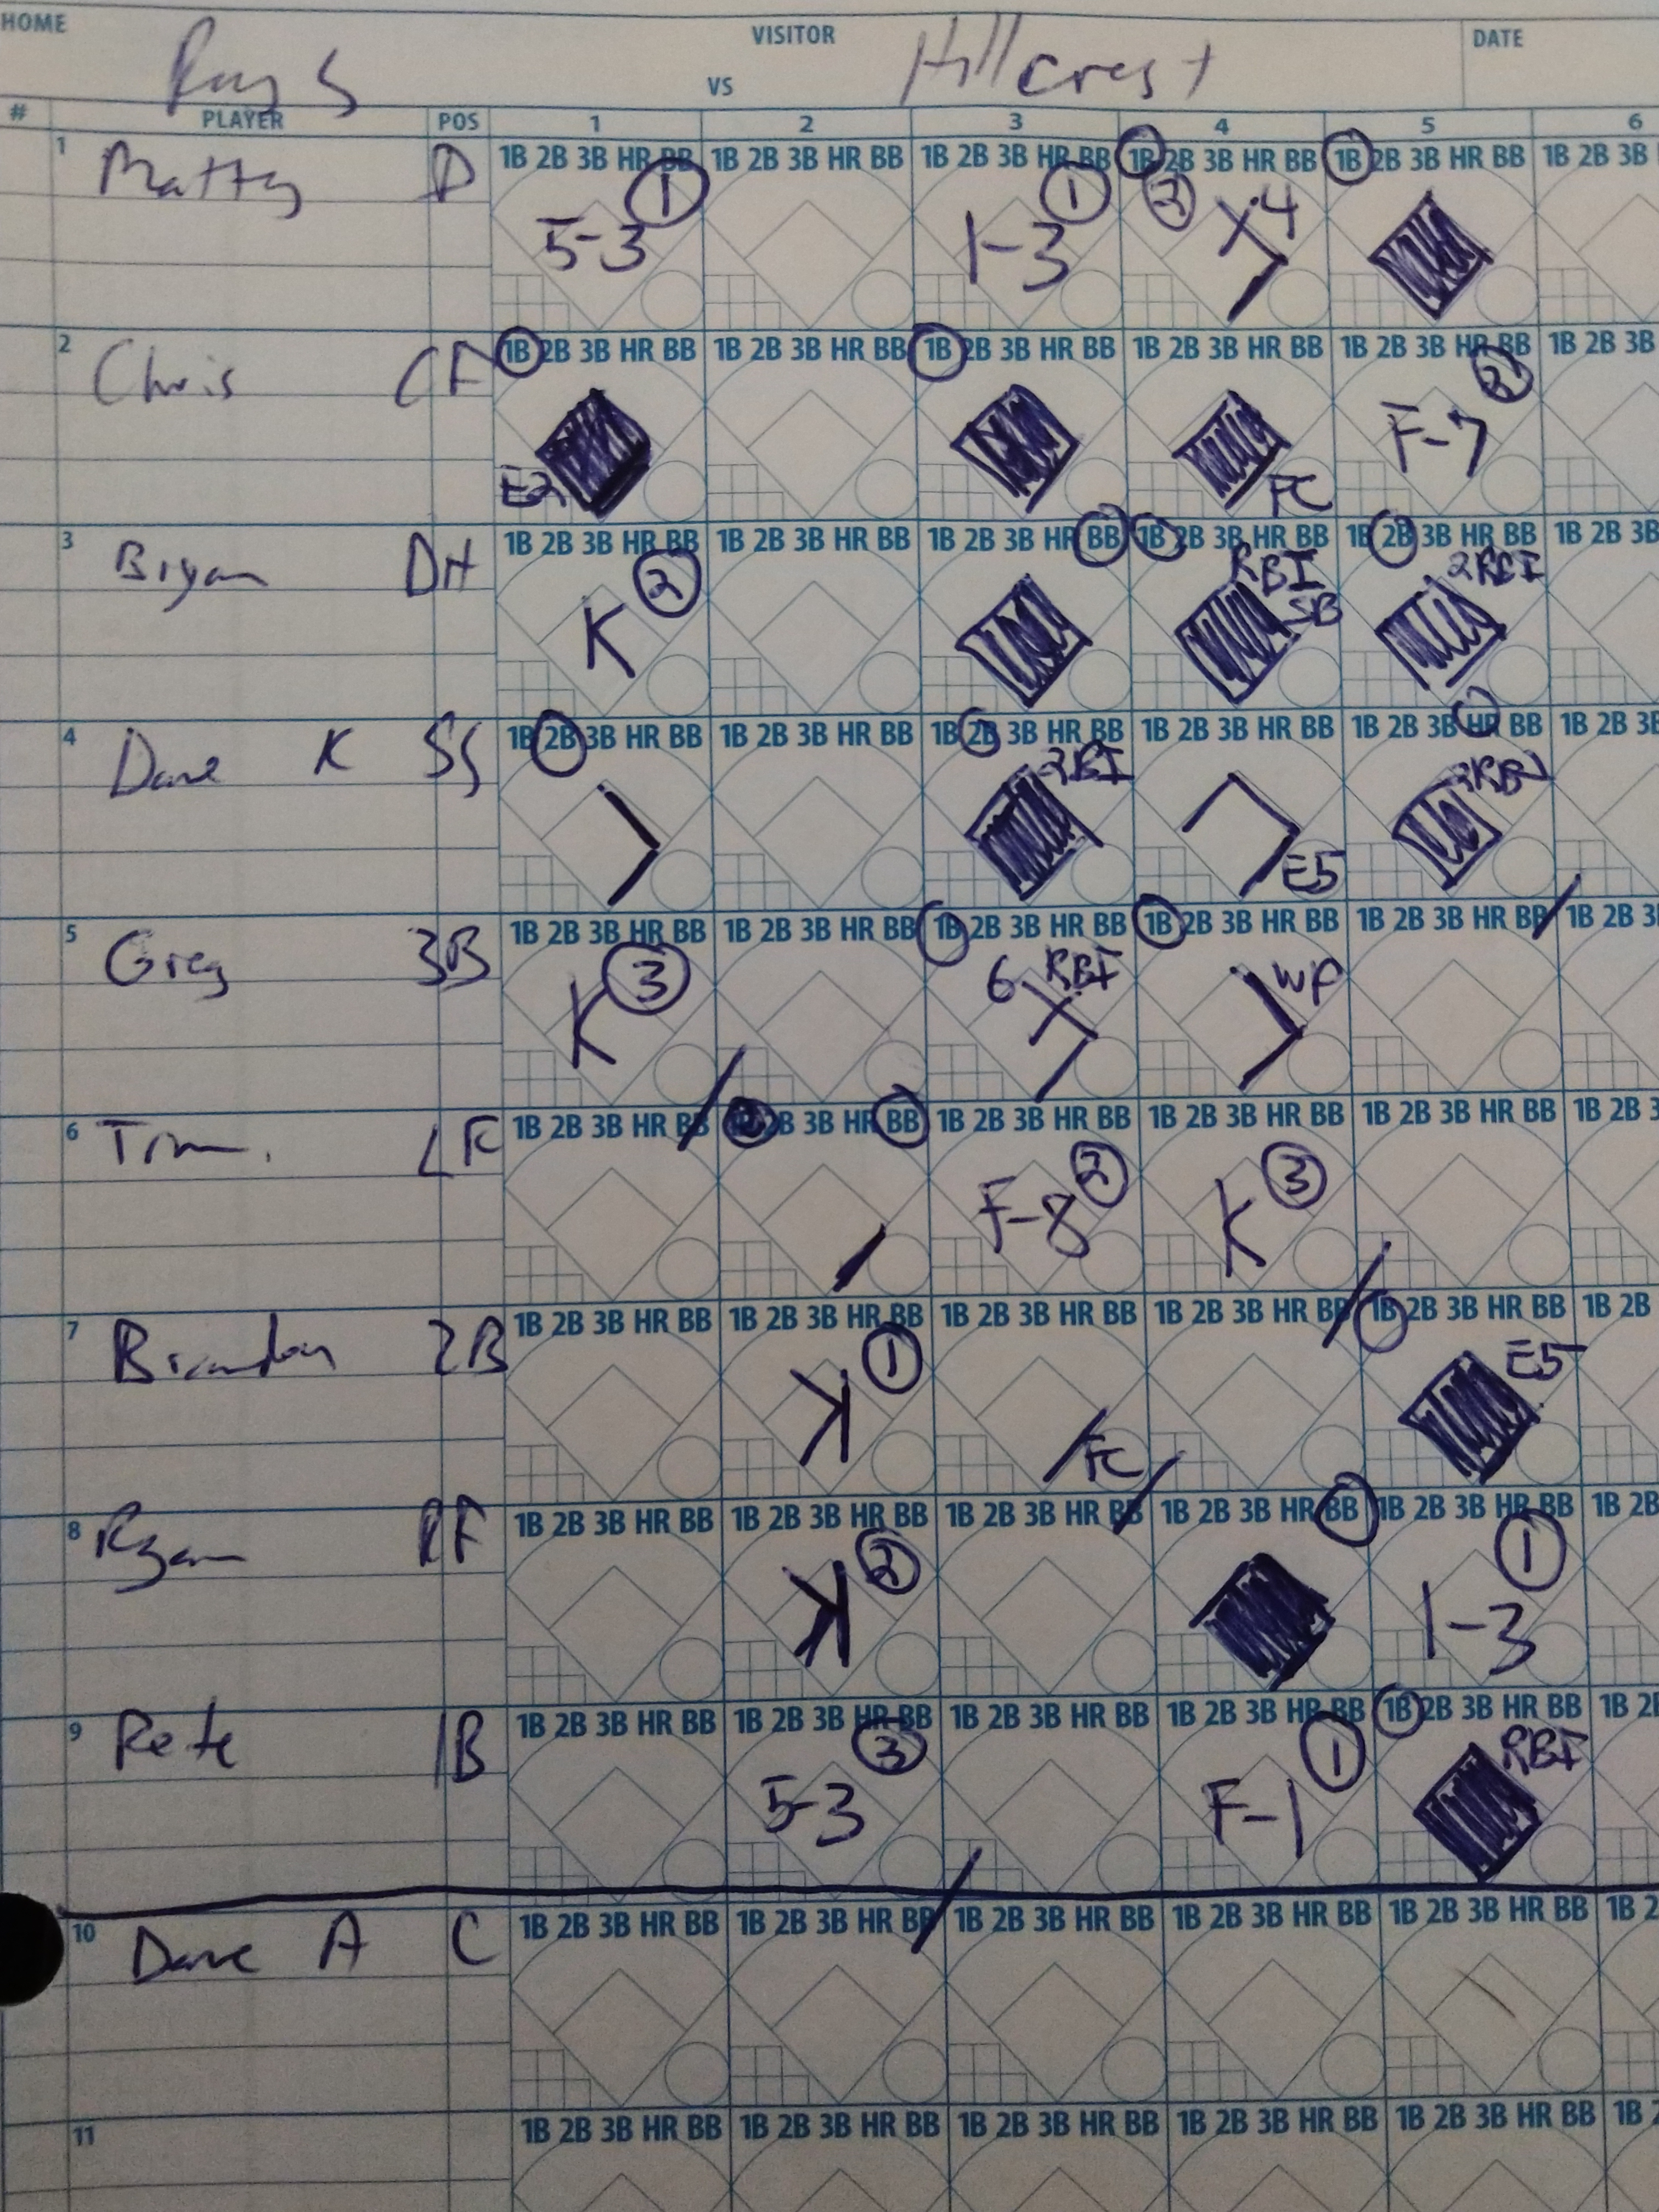 HOME VISITOR DATE
Rays VS Hillcrest
# PLAYER POS 1 2 3 4 5 6
1 Matty P 1B 2B 3B HR BB 1B 2B 3B HR BB 1B 2B 3B HR BB 1B 2B 3B HR BB 1B 2B 3B HR BB 1B 2B 3B
5-3 1 1-3 1 2 4
2 Chris CF 1B 2B 3B HR BB 1B 2B 3B HR BB 1B 2B 3B HR BB 1B 2B 3B HR BB 1B 2B 3B HR BB 1B 2B 3B
E2 FC F-7 2
3 Bryan DH 1B 2B 3B HR BB 1B 2B 3B HR BB 1B 2B 3B HR BB 1B 2B 3B HR BB 1B 2B 3B HR BB 1B 2B 3B
K 2 RBI SB 2RBI
4 Dave K SS 1B 2B 3B HR BB 1B 2B 3B HR BB 1B 2B 3B HR BB 1B 2B 3B HR BB 1B 2B 3B HR BB 1B 2B 3B
2RBI E5
5 Greg 3B 1B 2B 3B HR BB 1B 2B 3B HR BB 1B 2B 3B HR BB 1B 2B 3B HR BB 1B 2B 3B HR BB 1B 2B 3B
K 3 6 RBI WP
6 Tim LF 1B 2B 3B HR BB 2B 3B HR BB 1B 2B 3B HR BB 1B 2B 3B HR BB 1B 2B 3B HR BB 1B 2B 3
F-8 2 K 3
7 Brandon 2B 1B 2B 3B HR BB 1B 2B 3B HR BB 1B 2B 3B HR BB 1B 2B 3B HR BB 1B 2B 3B HR BB 1B 2B
K 1 FC E5
8 Ryan RF 1B 2B 3B HR BB 1B 2B 3B HR BB 1B 2B 3B HR BB 1B 2B 3B HR BB 1B 2B 3B HR BB 1B 2B
K 2 1-3 1
9 Pete 1B 1B 2B 3B HR BB 1B 2B 3B HR BB 1B 2B 3B HR BB 1B 2B 3B HR BB 1B 2B 3B HR BB 1B 2B
5-3 3 F-1 1 RBI
10 Dave A C 1B 2B 3B HR BB 1B 2B 3B HR BB 1B 2B 3B HR BB 1B 2B 3B HR BB 1B 2B 3B HR BB 1B 2
11 1B 2B 3B HR BB 1B 2B 3B HR BB 1B 2B 3B HR BB 1B 2B 3B HR BB 1B 2B 3B HR BB 1B